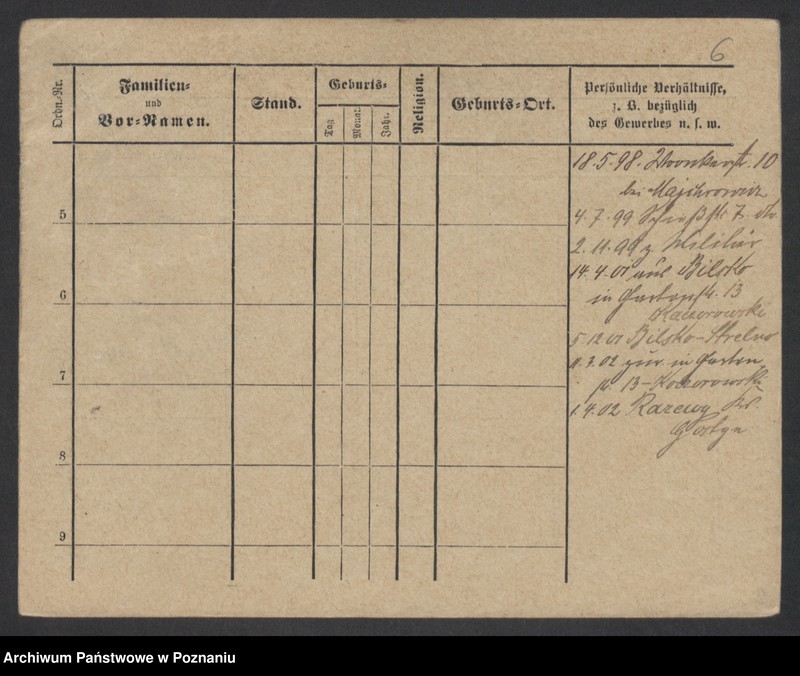 6
Ordn.-Nr.
Familien-
und
Vor-Namen.
Stand.
Geburts-
Tag
Monat
Jahr.
Religion.
Geburts-Ort.
Persönliche Verhältnisse,
z. B. bezüglich
des Gewerbes u. s. w.
18.5.98. 10
bei Majchrowicz
5
4.7.99 Schießstr. 7.
2.11.99 z. Militär
14.4.01 aus Bilsko
6
in Gartenstr. 13
Kaczorowski
5.12.01 Bilsko-Strelno
11.3.02 zur. in Garten
7
str. 13-Kaczorowski
1.4.02 Kr.
Gostyn
8
9
Archiwum Państwowe w Poznaniu